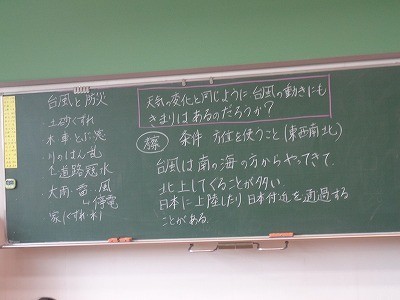 台風と防災
土砂くずれ
木 車 とぶ 窓
川のはん乱
道路冠水
大雨・雷・風
↳停電
家(くずれ・木)
天気の変化と同じように、台風の動きにも
きまりはあるのだろうか?
条件 方位を使うこと(東西南北)
台風は南の海の方からやってきて、
北上してくることが多い。
日本に上陸したり日本付近を通過する
ことがある。